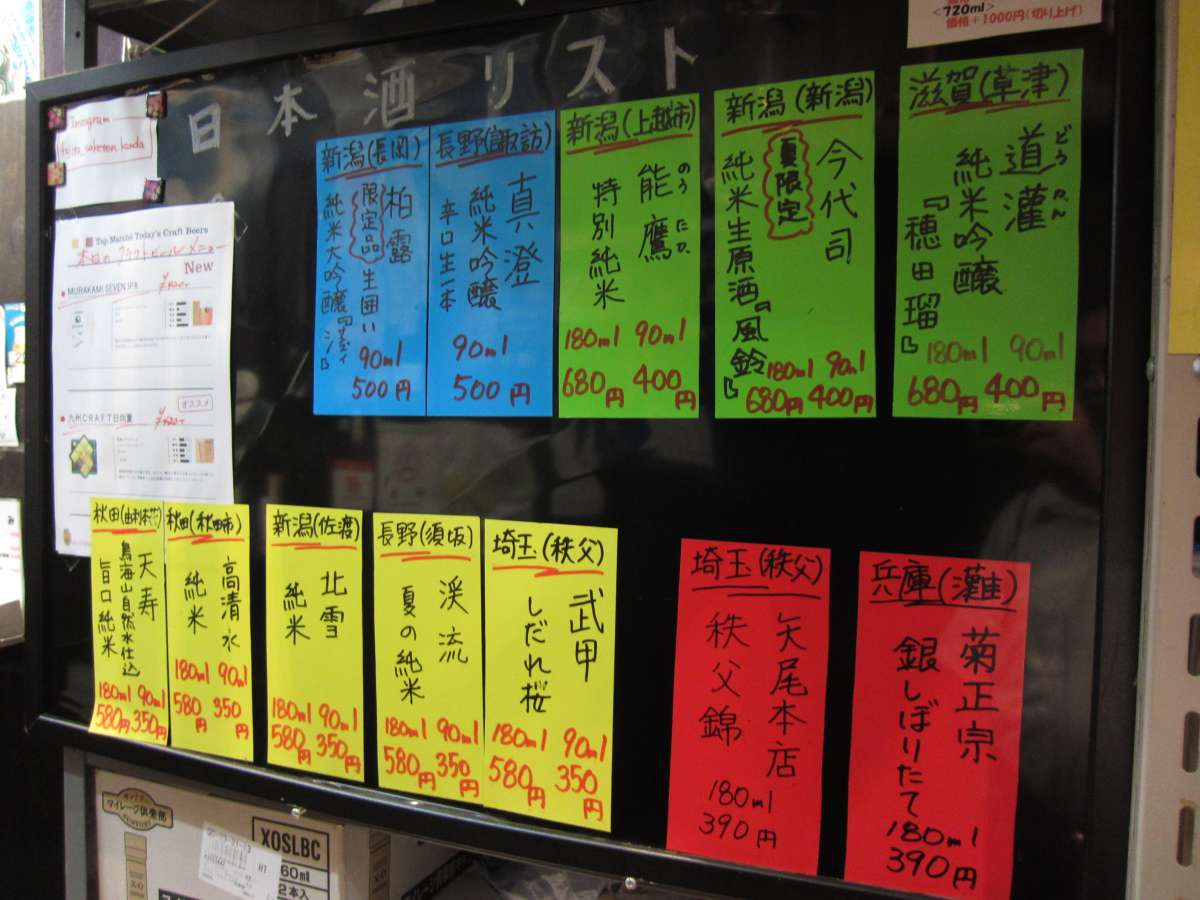 <720ml>
価格+1000円(切り上げ)
日本酒リスト
Tap Marché Today's Craft Beers
本日のクラフトビールメニュー
New
MURAKAMI SEVEN IPA
オススメ
九州CRAFT日向夏
新潟(長岡)
柏露
限定品 生囲い
純米大吟醸
90ml
500円
長野(諏訪)
真澄
純米吟醸
辛口生一本
90ml
500円
新潟(上越市)
能鷹
特別純米
180ml 90ml
680円 400円
新潟(新潟)
今代司
夏限定
純米生原酒『風鈴』
180ml 90ml
680円 400円
滋賀(草津)
道灌
どうかん
純米吟醸
『穂田瑠』
180ml 90ml
680円 400円
秋田(由利本荘)
天寿
鳥海山自然水仕込
旨口純米
180ml 90ml
580円 350円
秋田(秋田市)
高清水
純米
180ml 90ml
580円 350円
新潟(佐渡)
北雪
純米
180ml 90ml
580円 350円
長野(須坂)
渓流
夏の純米
180ml 90ml
580円 350円
埼玉(秩父)
武甲
しだれ桜
180ml 90ml
580円 350円
埼玉(秩父)
矢尾本店
秩父錦
180ml
390円
兵庫(灘)
菊正宗
銀しぼりたて
180ml
390円
マイレージ倶楽部
XOSLBC
60ml
2本入
XO